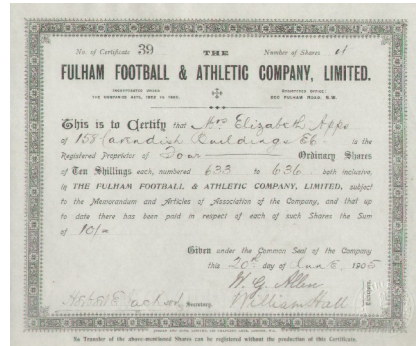 No. of Certificate 39 THE Number of Shares 4
FULHAM FOOTBALL & ATHLETIC COMPANY, LIMITED.
INCORPORATED UNDER REGISTERED OFFICE:
THE COMPANIES ACTS, 1862 TO 1900. FULHAM ROAD, S.W.
This is to Certify that Mrs Elizabeth Apps
of 158 Cavendish Buildings EC is the
Registered Proprietor of Four Ordinary Shares
of Ten Shillings each, numbered 633 to 636 both inclusive,
in THE FULHAM FOOTBALL & ATHLETIC COMPANY, LIMITED, subject
to the Memorandum and Articles of Association of the Company, and that up
to date there has been paid in respect of each of such Shares the Sum
of 10/-
Given under the Common Seal of the Company
this 20th day of June 1905
W. G. Allen
Secretary. William Hall
No Transfer of the above-mentioned Shares can be registered without the production of this Certificate.